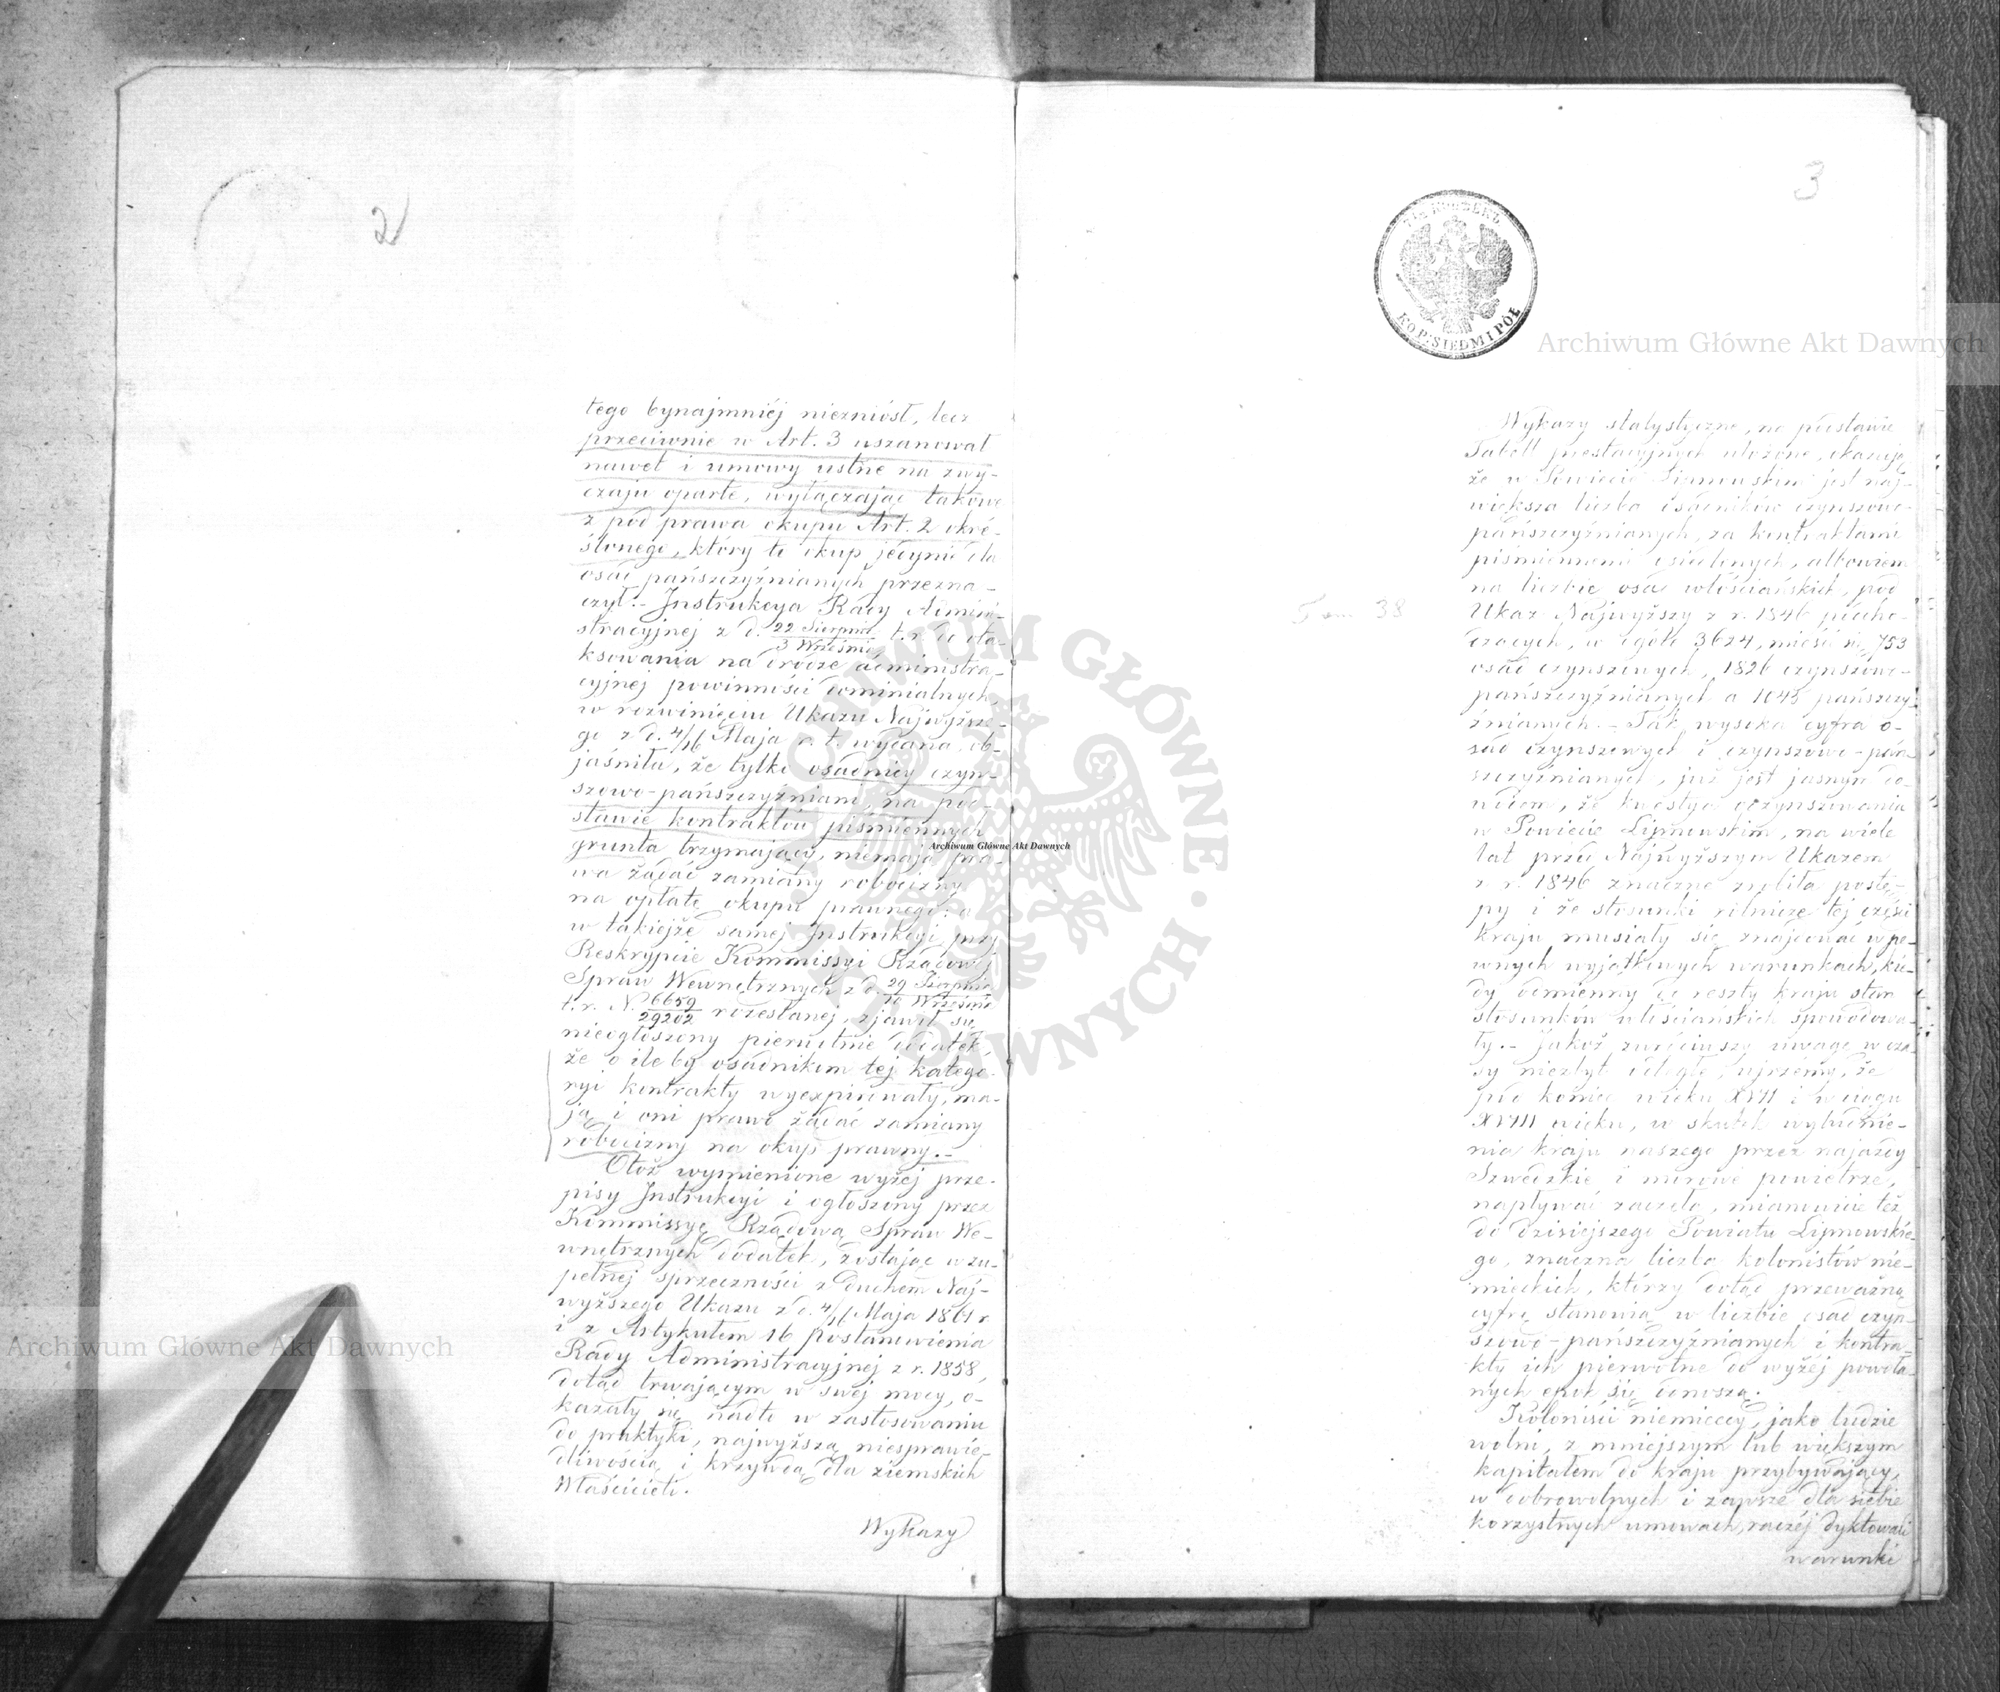 2
tego bynajmniéj niezniósł, lecz
przeciwnie w Art. 3 uszanował
nawet i umowy ustne na zwy-
czaju oparte, wyłączając takowe
z pod prawa okupu Art. 2 okré-
ślonego, który to okup jedynie dla
osad pańszczyźnianych przezna-
czył.- Instrukcya Rady Admini-
stracyjnej z d. 22 Sierpnia / 3 Września t. r. do ota-
ksowania na drodze administra-
cyjnej powinności dominialnych,
w rozwinięciu Ukazu Najwyższe-
go z d. 4/16 Maja r. t. wydana, ob-
jaśniła, że tylko osadnicy czyn-
szowo-pańszczyźniani, na pod-
stawie kontraktów piśmiennych
grunta trzymający, niemają pra-
wa żądać zamiany robocizny
na opłatę okupu prawnego: a
w takiejże samej Instrukcyi przy
Reskrypcie Kommissyi Rządowej
Spraw Wewnętrznych z d. 29 Sierpnia / 10 Września
t. r. N. 6659/29202 rozesłanej, zjawił się
nieogłoszony pierwotnie dodatek,
że o ile by osadnikom tej katego-
ryi kontrakty wyexpirowały, ma-
ją i oni prawo żądać zamiany
robocizny na okup prawny.-
Otóż wymienione wyżej prze-
pisy Instrukcyi i ogłoszony przez
Kommissyę Rządową Spraw We-
wnętrznych dodatek, zostając w zu-
pełnej sprzeczności z duchem Naj-
wyższego Ukazu z d. 4/16 Maja 1861 r.
i z Artykułem 16 postanowienia
Rady Administracyjnej z r. 1858,
dotąd trwającym w swej mocy, o-
kazały się nadto w zastosowaniu
do praktyki, najwyższą niesprawie-
dliwością i krzywdą dla ziemskich
Właścicieli.
Wykazy
3
7½ КОПѢЕКЪ
KOP: SIEDM I PÓŁ
Tom 38
Wykazy statystyczne, na podstawie
Tabell prestacyjnych ułożone, okazują
że w Powiecie Lipnowskim jest naj-
większa liczba osadników czynszowo-
pańszczyźnianych, za kontraktami
piśmiennemi osiedlonych, albowiem
na liczbie osad włościańskich, pod
Ukaz Najwyższy z r. 1846 podcho-
dzących, w ogóle 3624, mieści się 753
osad czynszowych, 1826 czynszowo-
pańszczyźnianych a 1045 pańszczy-
źnianych.- Tak wysoka cyfra o-
sad czynszowych i czynszowo-pań-
szczyźnianych, już jest jasnym do-
wodem, że kwestya oczynszowania
w Powiecie Lipnowskim, na wiele
lat przed Najwyższym Ukazem
z r. 1846 znaczne zrobiła postę-
py i że stosunki rolnicze tej części
kraju musiały się znajdować w pe-
wnych wyjątkowych warunkach, kie-
dy odmienny od reszty kraju stan
stosunków włościańskich spowodowa-
ły.- Jakoż zwróciwszy uwagę w cza-
sy niezbyt odległe, ujrzemy, że
pod koniec wieku XVII i w ciągu
XVIII wieku, w skutek wyludnie-
nia kraju naszego przez najazdy
Szwedzkie i morowe powietrze,
napływać zaczęła, mianowicie też
do dzisiejszego Powiatu Lipnowskie-
go, znaczna liczba kolonistów nie-
mieckich, którzy dotąd przeważną
cyfrę stanowią w liczbie osad czyn-
szowo-pańszczyźnianych i kontra-
kty ich pierwotne do wyżéj powoła-
nych epok się odnoszą.
Koloniści niemieccy, jako ludzie
wolni, z mniejszym lub większym
kapitałem do kraju przybywający,
w dobrowolnych i zawsze dla siebie
korzystnych umowach, raczéj dyktowali
warunki
Archiwum Główne Akt Dawnych
Archiwum Główne Akt Dawnych
Archiwum Główne Akt Dawnych
ARCHIWUM GŁÓWNE AKT DAWNYCH